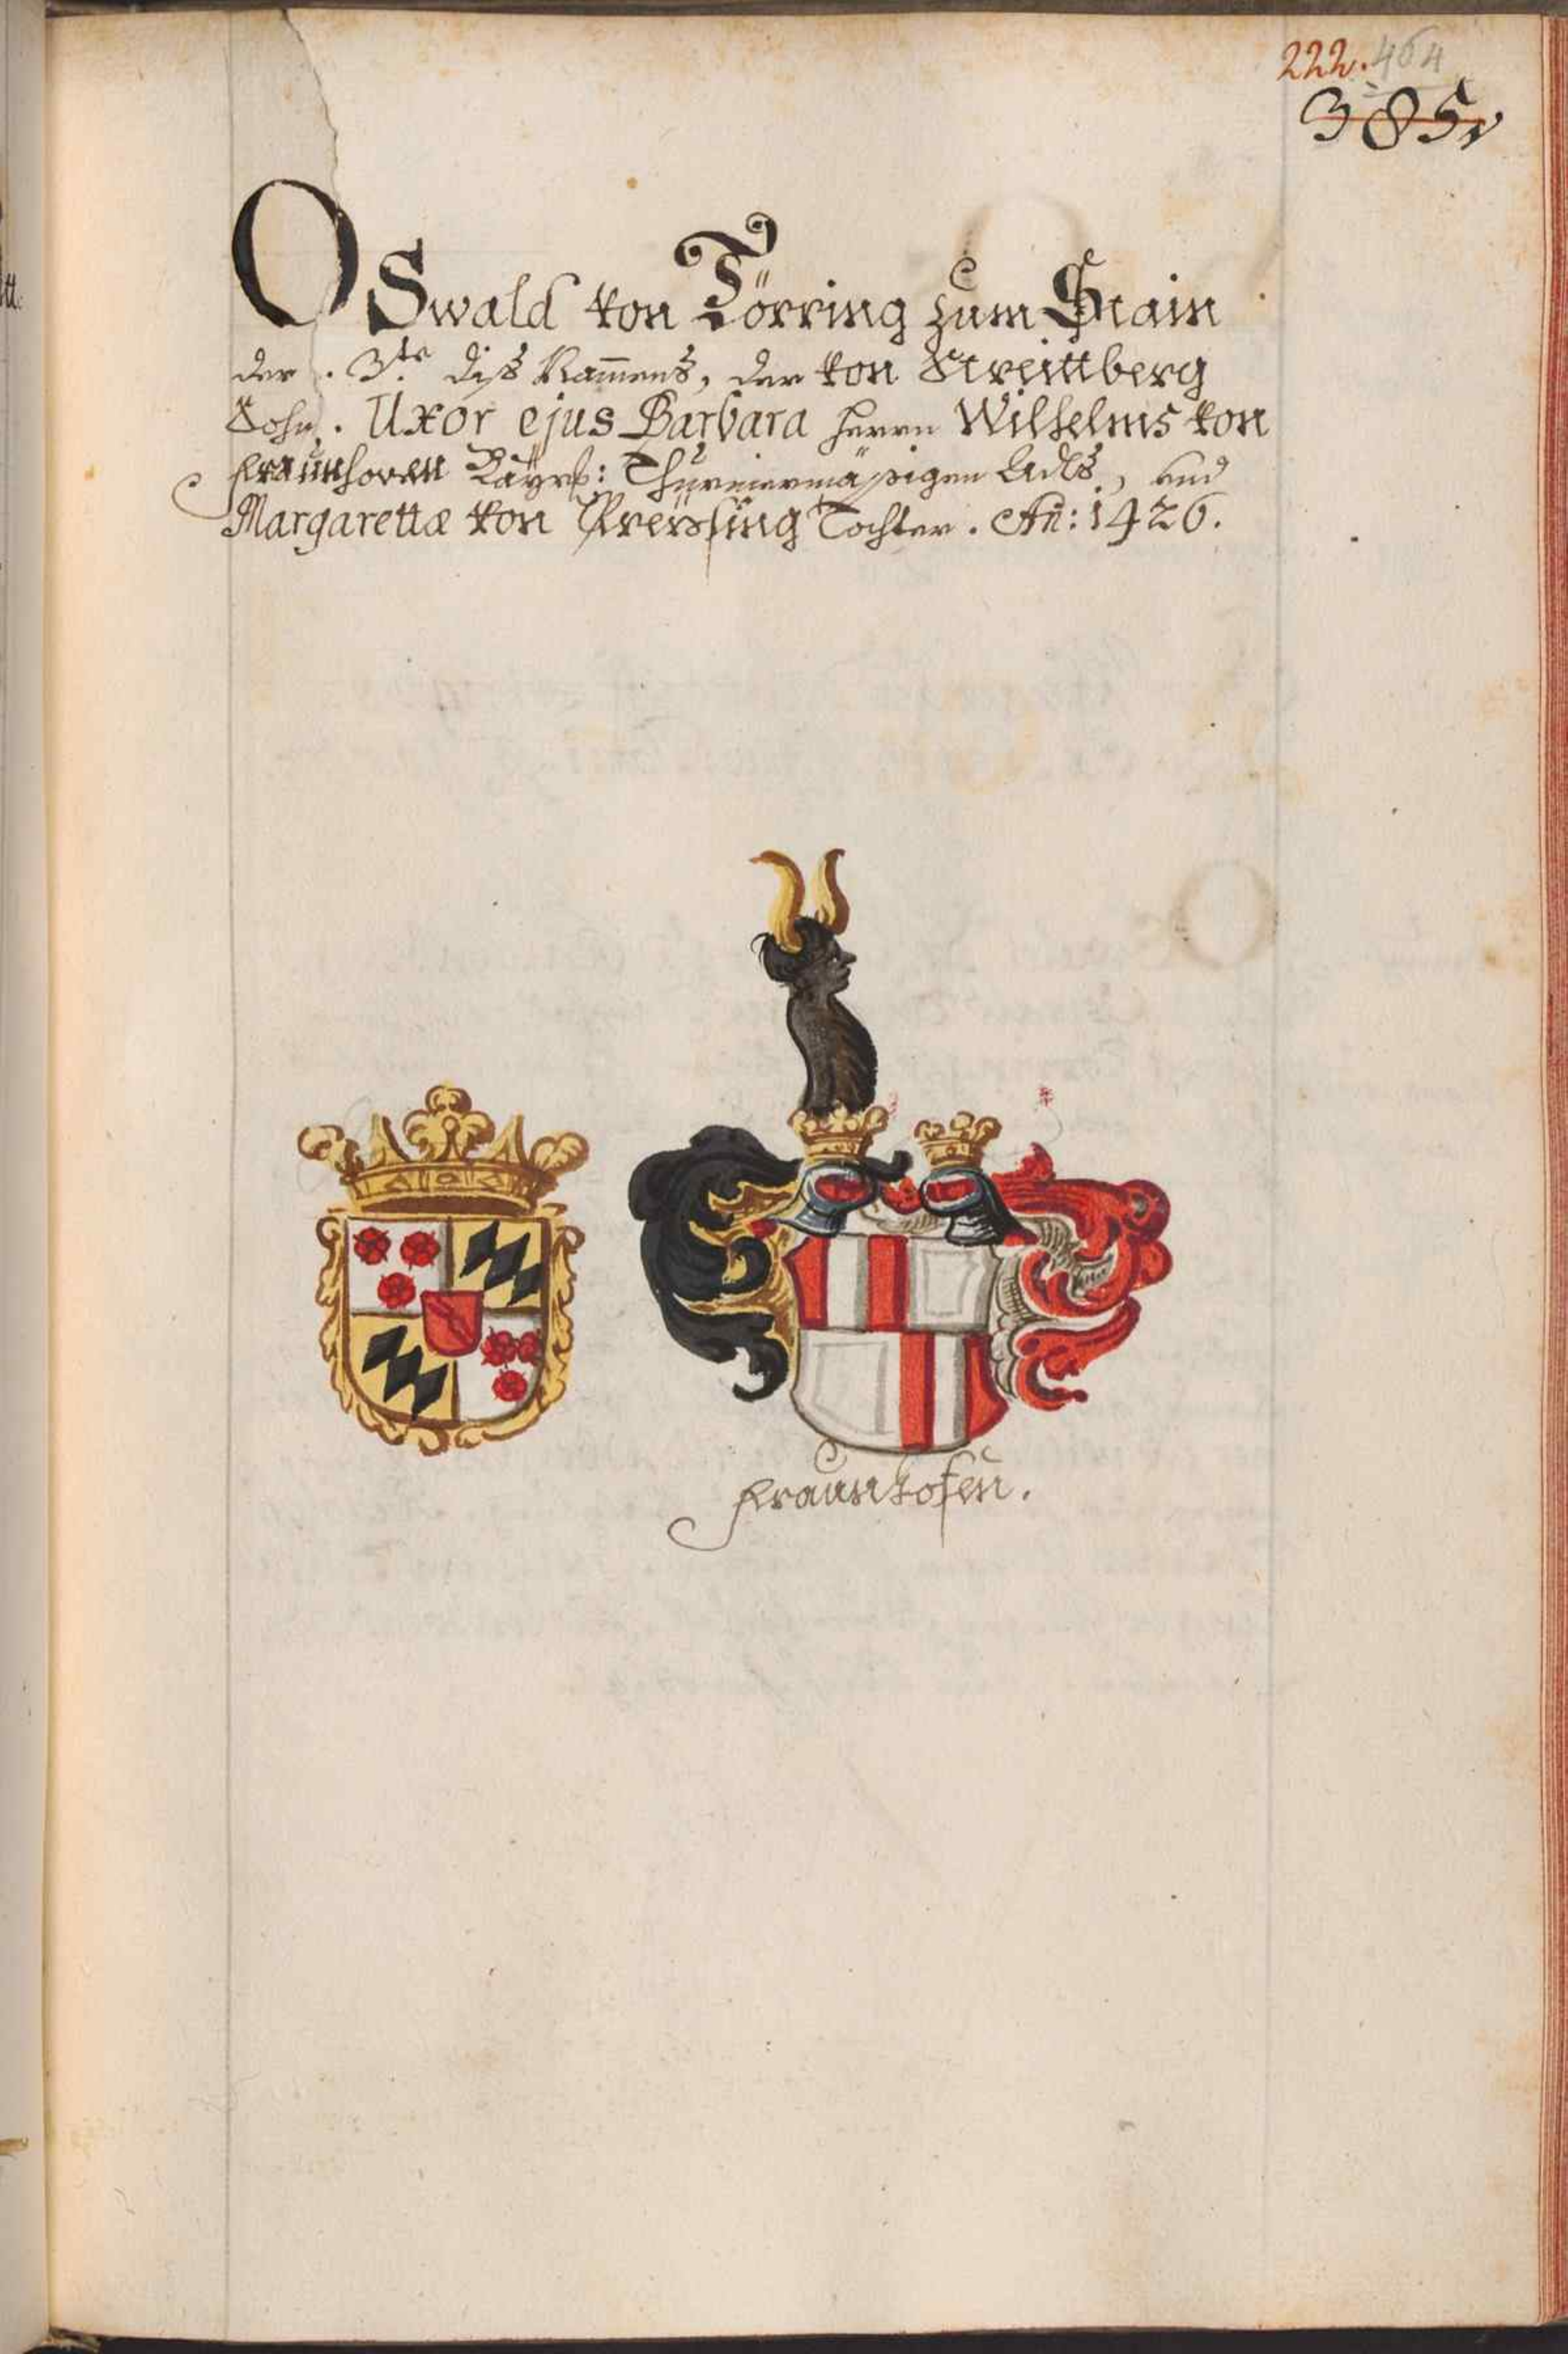 222. 464
385
OSwald von Törring zum Stain
der . 3.te diß Nam̄ens, der von Streittberg
Sohn. Uxor ejus Barbara Herrn Wilhelms von
Fraunhoven Bayrß: Thurniermäßigen Adls, und
Margarettæ von Preyssing Tochter. An̄: 1426.
Fraunhofen.